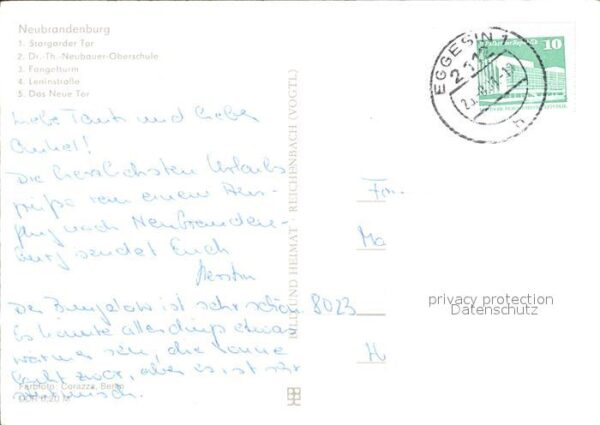 Neubrandenburg
1. Stargarder Tor
2. Dr.-Th.-Neubauer-Oberschule
3. Fangelturm
4. Leninstraße
5. Das Neue Tor
Liebe Tante und lieber
Onkel!
Die herzlichsten Urlaubs
grüße von einem Aus-
flug nach Neubranden-
burg sendet Euch
Kerstin
Der Bungalow ist sehr schön
Es könnte allerdings etwas
wärmer sein, die Sonne
lacht zwar, aber es ist sehr
stürmisch.
Farbfoto: Corazza, Berlin
DDR 0,20 M
BILD UND HEIMAT · REICHENBACH (VOGTL)
EGGESIN 1
h
10
Fam.
Ma
8023
H
privacy protection
Datenschutz